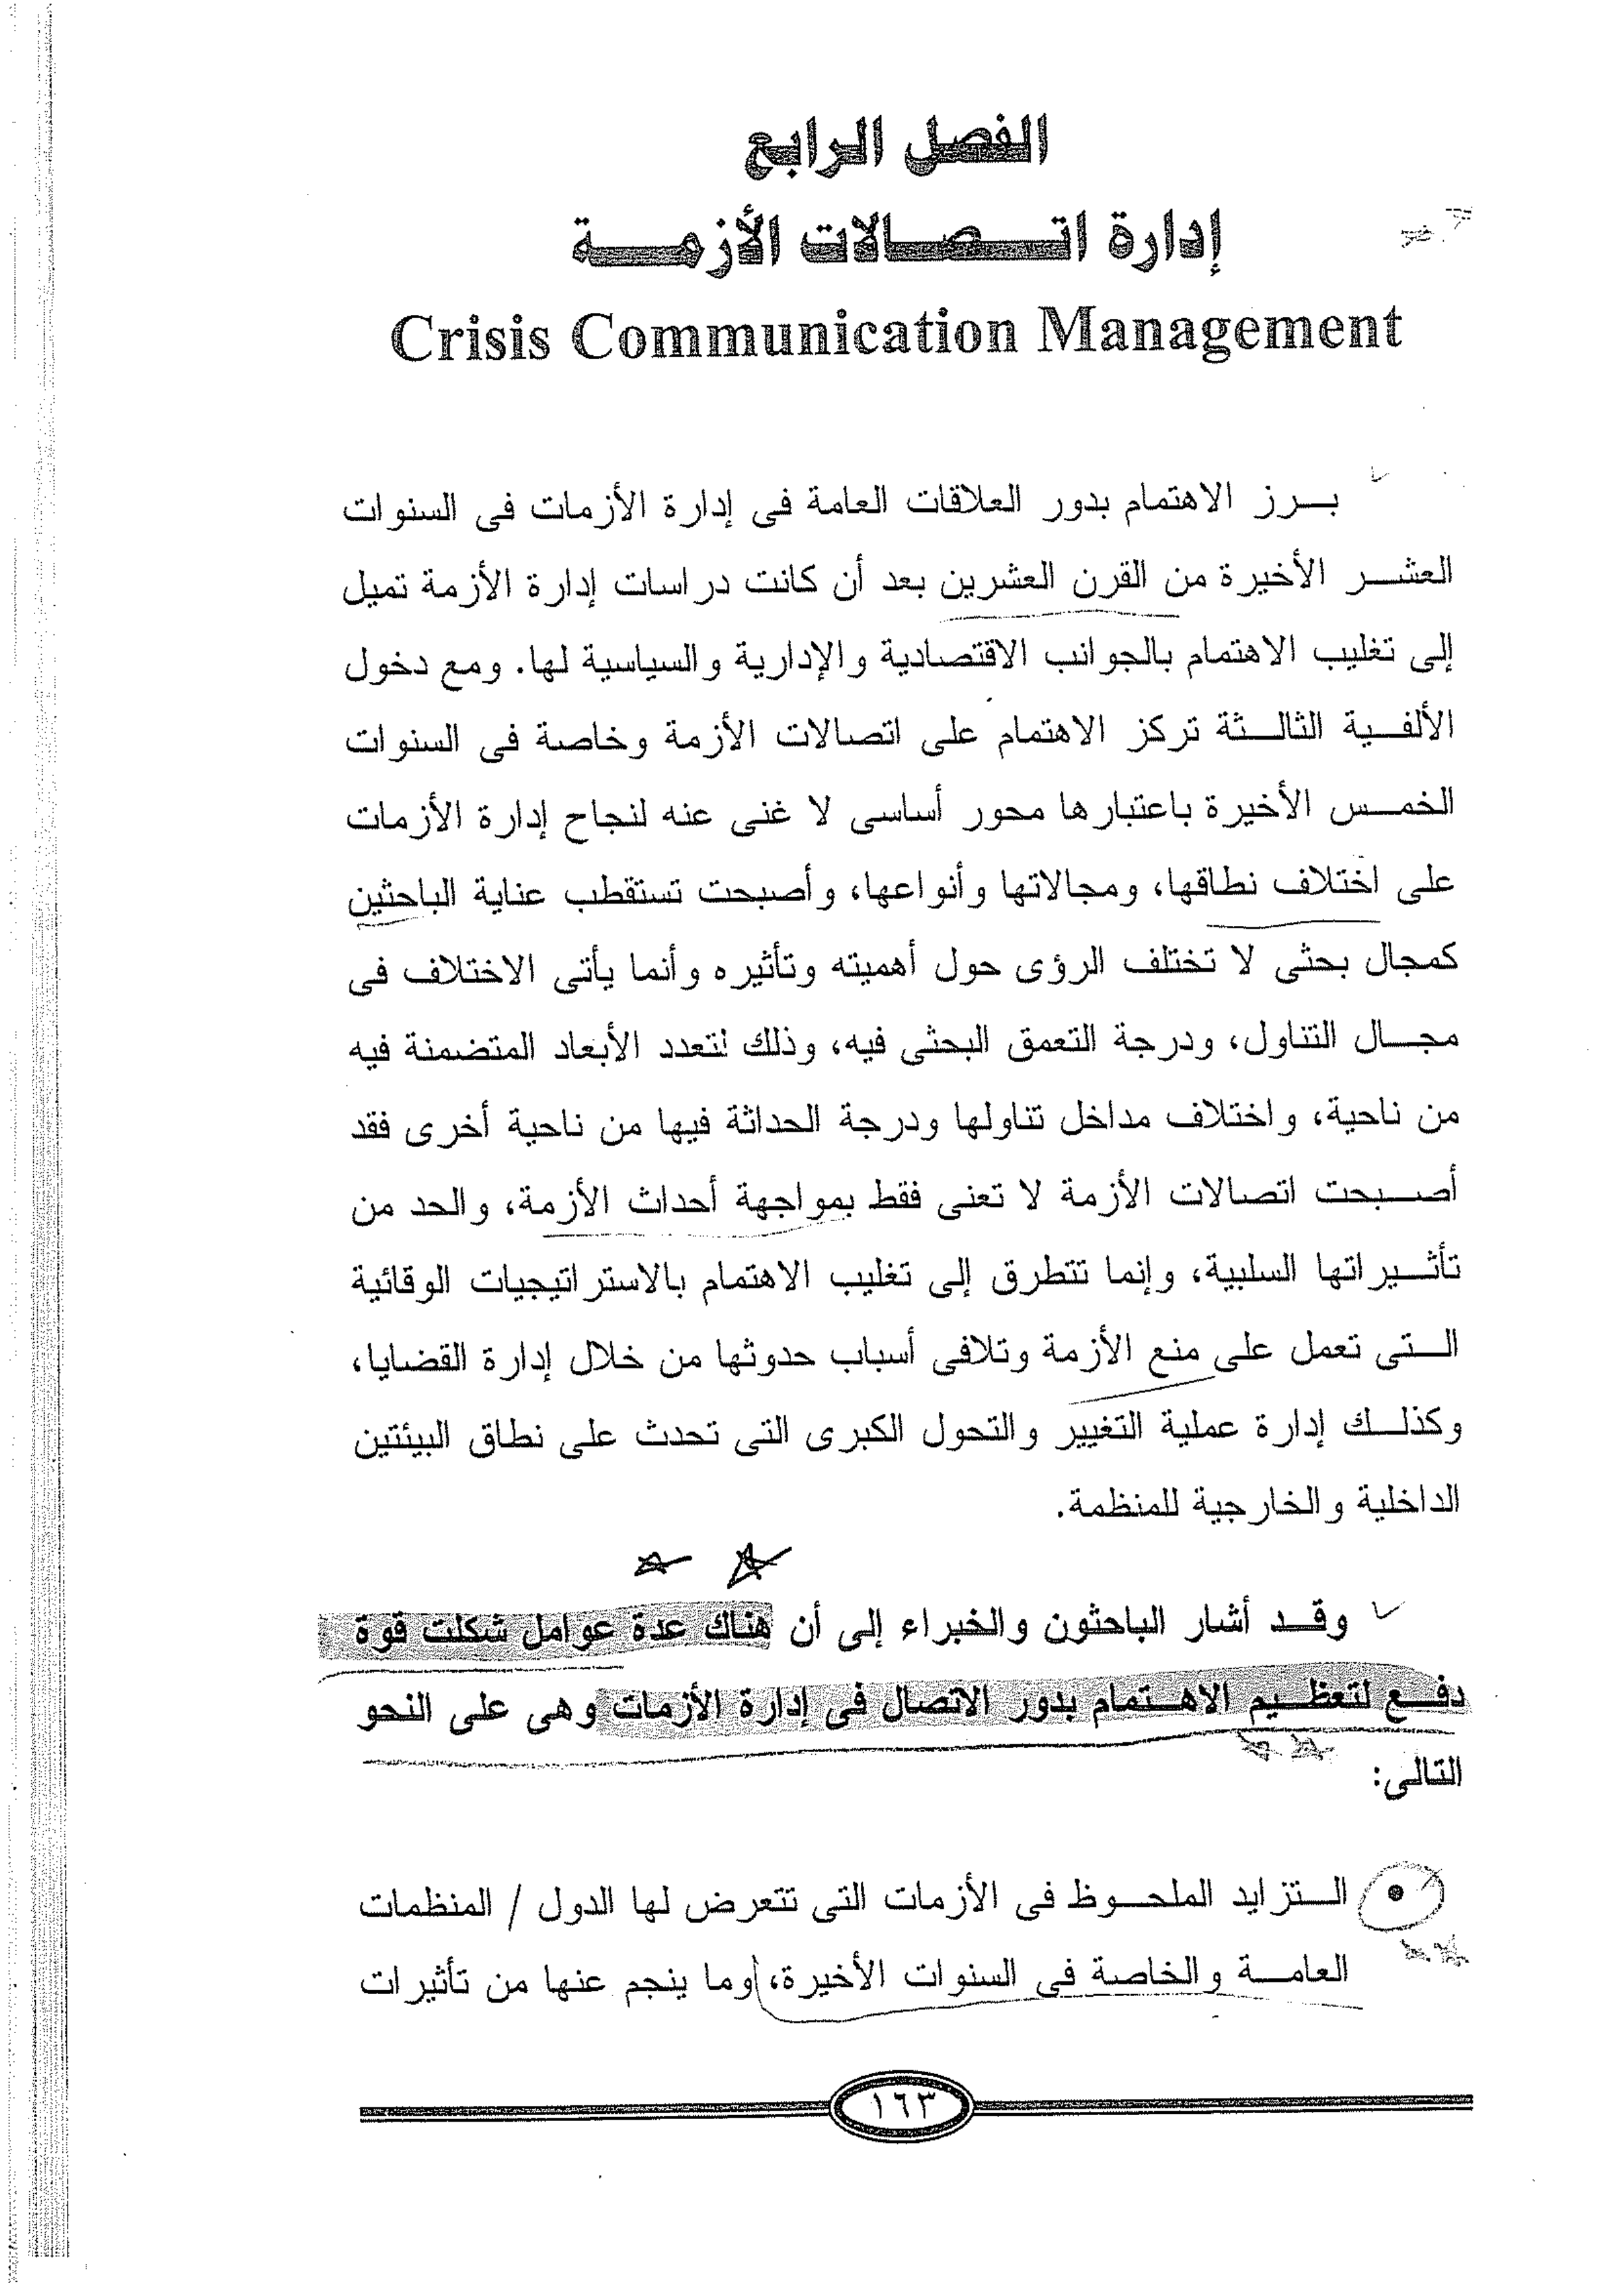 الفصل الرابع
إدارة اتصالات الأزمة
Crisis Communication Management
برز الاهتمام بدور العلاقات العامة فى إدارة الأزمات فى السنوات
العشر الأخيرة من القرن العشرين بعد أن كانت دراسات إدارة الأزمة تميل
إلى تغليب الاهتمام بالجوانب الاقتصادية والإدارية والسياسية لها. ومع دخول
الألفية الثالثة تركز الاهتمام على اتصالات الأزمة وخاصة فى السنوات
الخمس الأخيرة باعتبارها محور أساسى لا غنى عنه لنجاح إدارة الأزمات
على اختلاف نطاقها، ومجالاتها وأنواعها، وأصبحت تستقطب عناية الباحثين
كمجال بحثى لا تختلف الرؤى حول أهميته وتأثيره وأنما يأتى الاختلاف فى
مجال التناول، ودرجة التعمق البحثى فيه، وذلك لتعدد الأبعاد المتضمنة فيه
من ناحية، واختلاف مداخل تناولها ودرجة الحداثة فيها من ناحية أخرى فقد
أصبحت اتصالات الأزمة لا تعنى فقط بمواجهة أحداث الأزمة، والحد من
تأثيراتها السلبية، وإنما تتطرق إلى تغليب الاهتمام بالاستراتيجيات الوقائية
التى تعمل على منع الأزمة وتلافى أسباب حدوثها من خلال إدارة القضايا،
وكذلك إدارة عملية التغيير والتحول الكبرى التى تحدث على نطاق البيئتين
الداخلية والخارجية للمنظمة.
وقد أشار الباحثون والخبراء إلى أن هناك عدة عوامل شكلت قوة
دفع لتعظيم الاهتمام بدور الاتصال فى إدارة الأزمات وهى على النحو
التالى:
• التزايد الملحوظ فى الأزمات التى تتعرض لها الدول / المنظمات
العامة والخاصة فى السنوات الأخيرة، وما ينجم عنها من تأثيرات
١٦٣